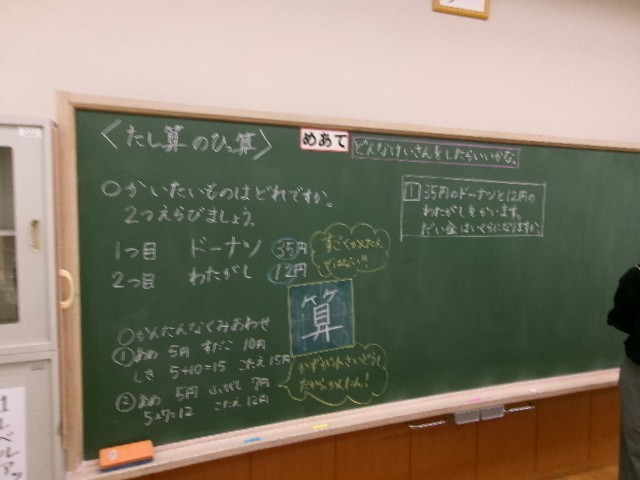 〈たし算のひっ算〉
めあて
どんなけいさんをしたらいいかな。
○かいたいものはどれですか。
2つえらびましょう。
1つ目 ドーナツ 35円
2つ目 わたがし 12円
すごくかんたん
ではない!!
算
1 35円のドーナツと12円の
わたがしをかいます。
だい金はいくらになりますか。
○かんたんなくみあわせ
① あめ 5円 すだこ 10円
しき 5+10=15 こたえ 15円
② あめ 5円 7円
5+7=12 こたえ 12円
かずが小さいどうし
だからかんたん!
1レベルアッ